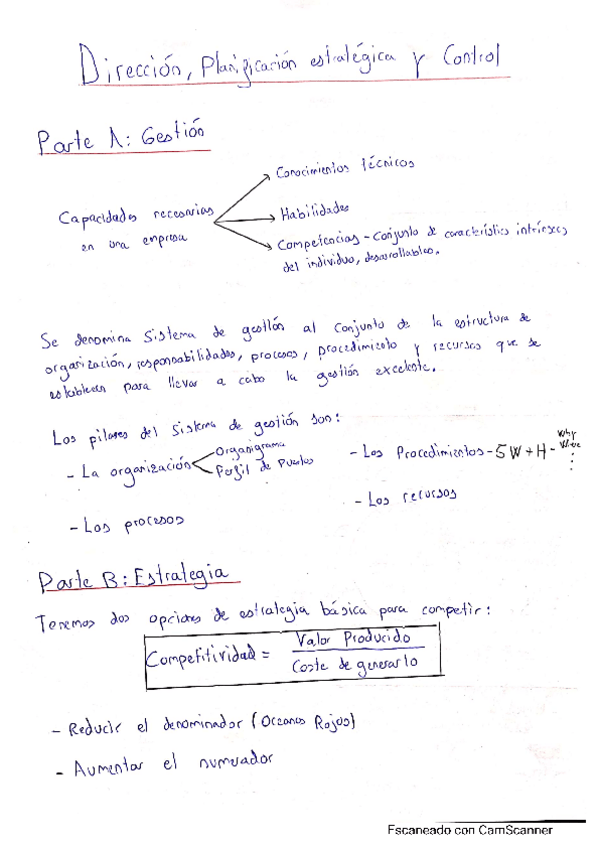 Dirección, Planificación estratégica y Control
Parte A: Gestión
Capacidades necesarias
en una empresa
Conocimientos técnicos
Habilidades
Competencias - Conjunto de característics intrínseces
del individuo, desarrollables.
Se denomina Sistema de gestión al conjunto de la estructura de
organización, responsabilidades, procesos, procedimieto y recursos que se
establecen para llevar a cabo la gestión excelente.
Los pilares del Sistema de gestión son:
- La organización
Organigrama
Perfil de Puestos
- Los Procedimientos - 5W + H -
Why
- Los procesos
- Los recursos
Parte B: Estrategia
Tenemos dos opciones de estrategia básica para competir:
Competitividad = Valor Producido
Coste de generarlo
- Reducir el denominador (Oceanos Rojos)
- Aumentar el numerador
Escaneado con CamScanner